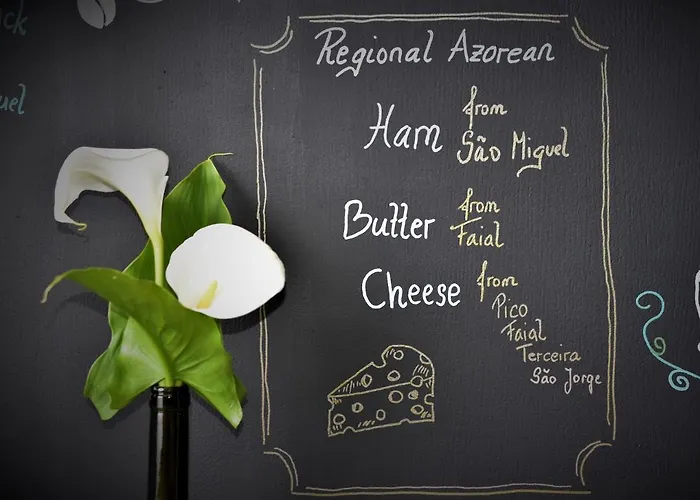 Regional Azorean
Ham from
São Miguel
Butter from
Faial
Cheese from
Pico
Faial
Terceira
São Jorge